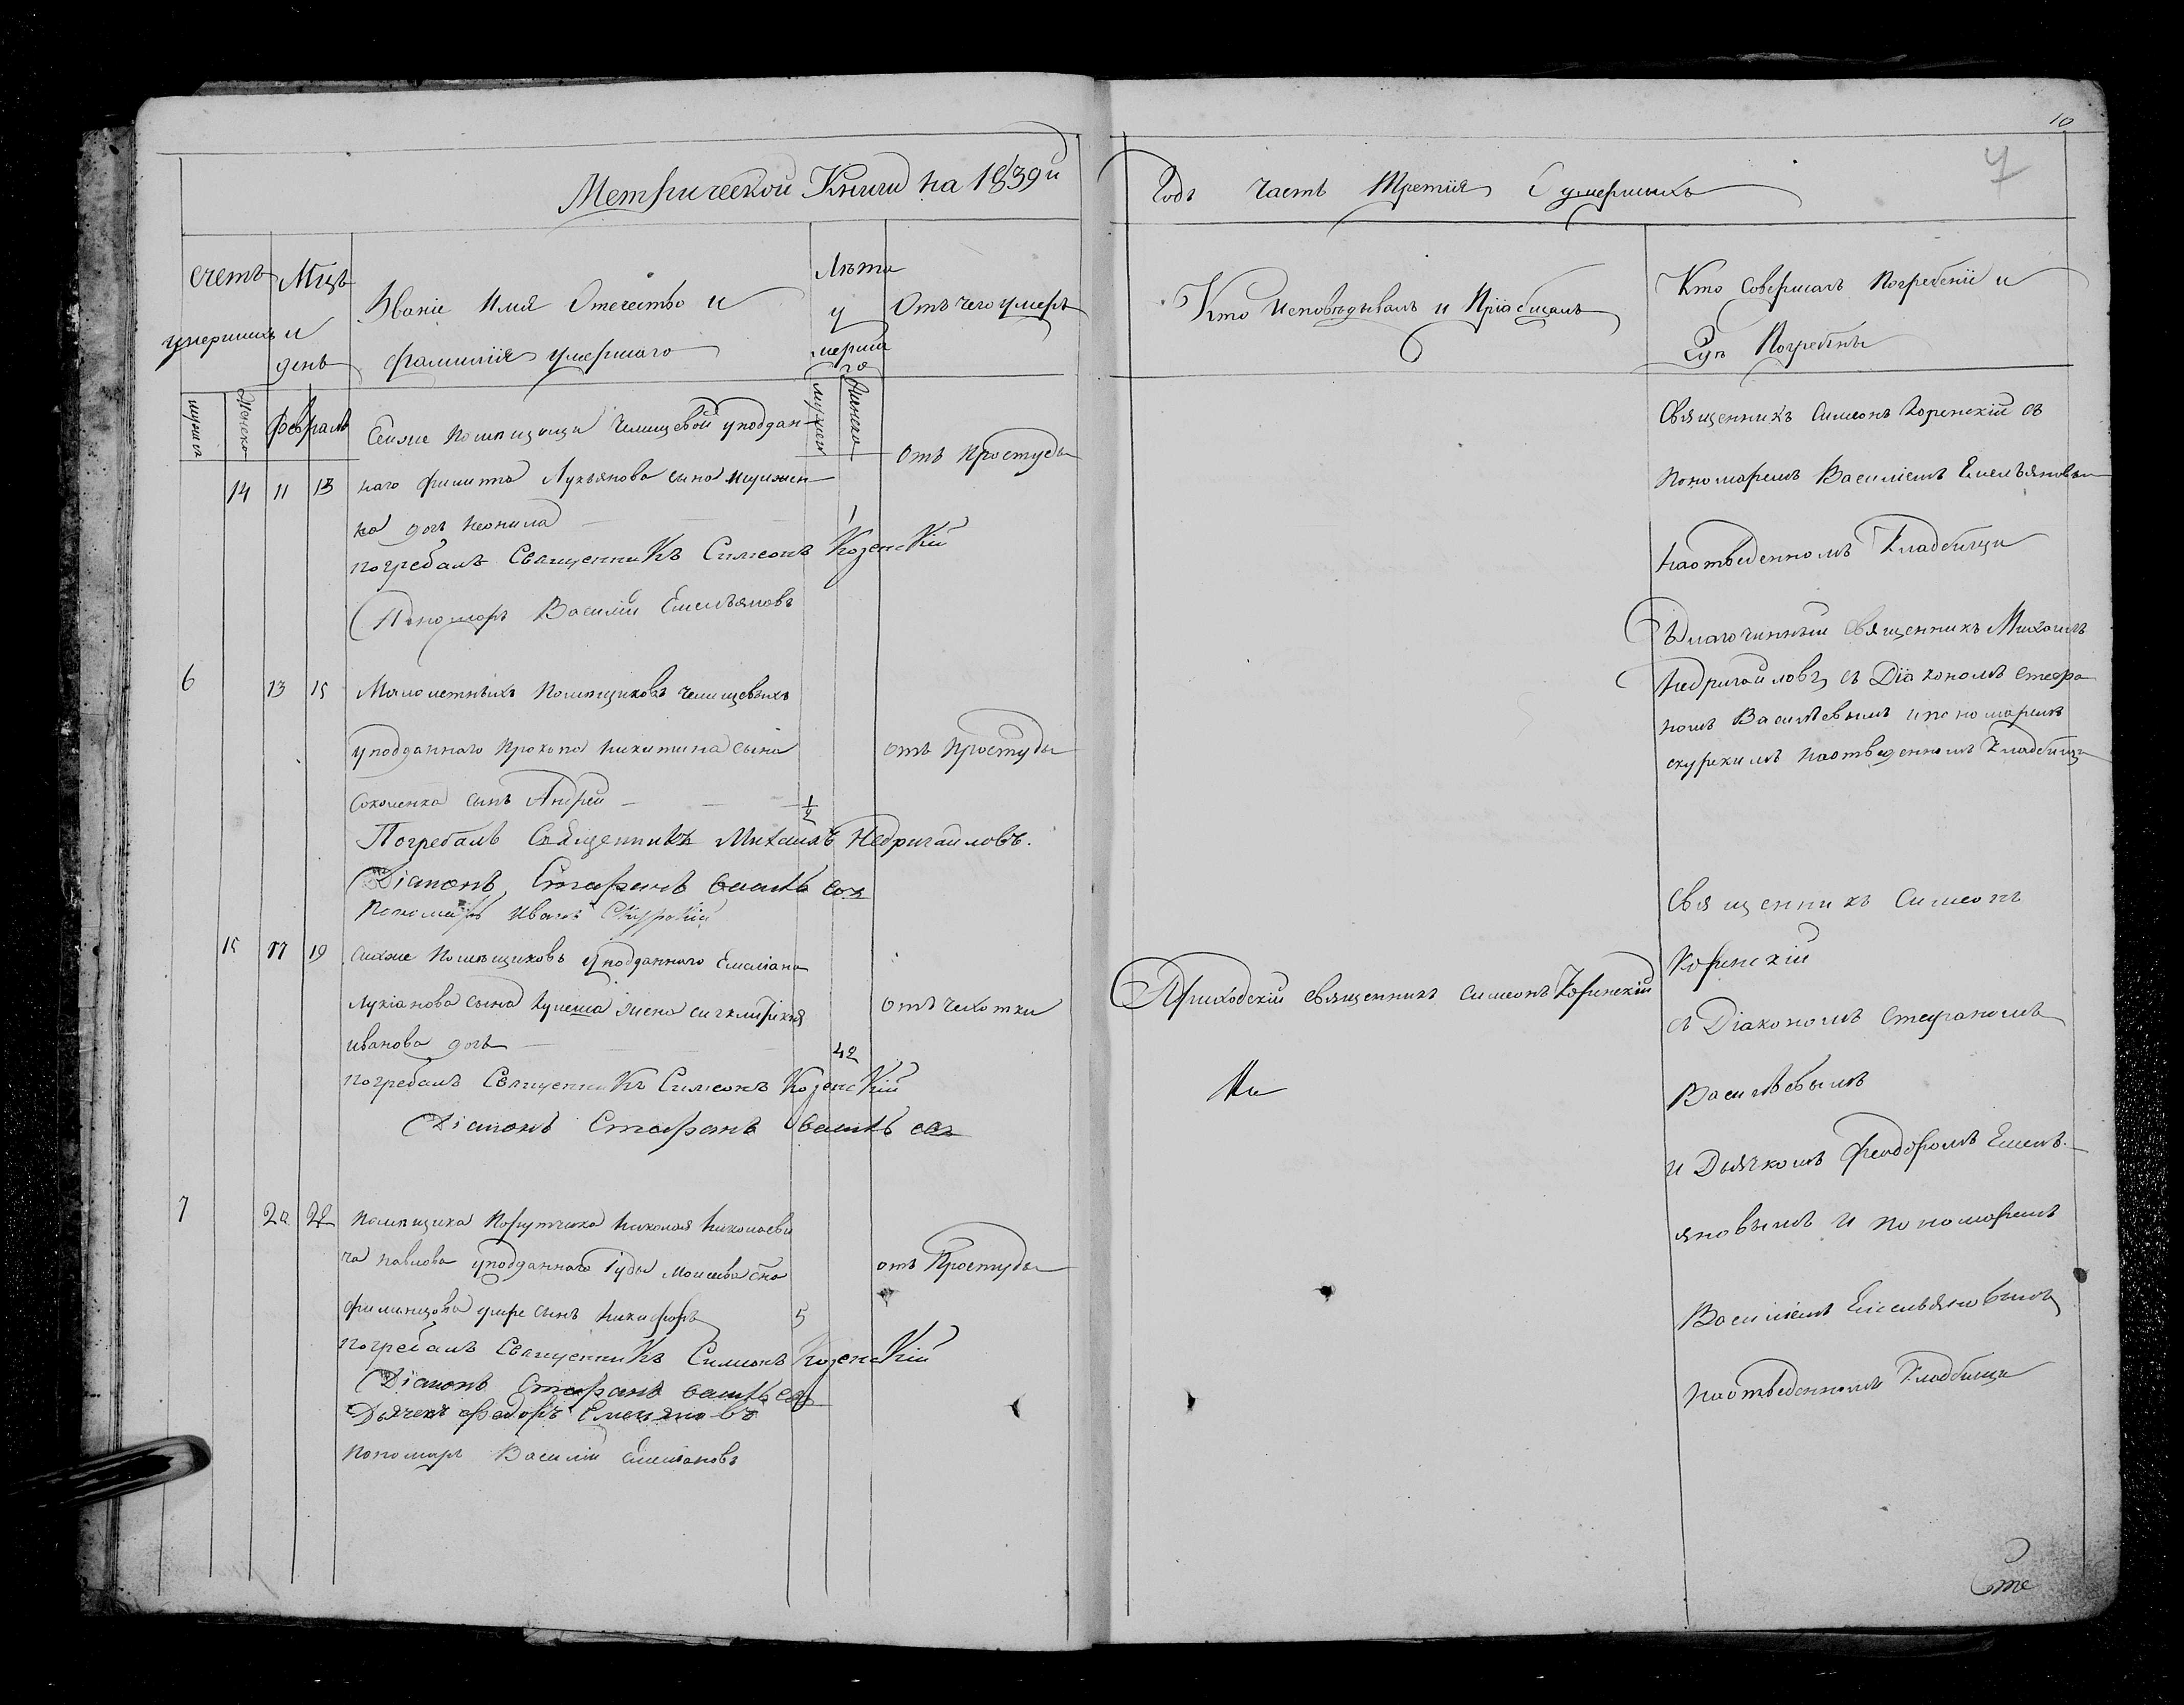 10
Метрической Книги на 1839й
Годъ часть Третїя О умершихъ
счетъ умершихъ
Мцъ и день
Званіе Имя Отечество и
фамиліия умершаго
Лѣта умершаго
Отъ чего умеръ
Кто Исповѣдывалъ и Пріобщалъ
Кто Совершалъ Погребеніе и
Гдѣ Погребены
мужеска
женска
Февраль
мужеска
женска
14 11 13
Сейже Помѣщицы Челищевой уподдан-
наго Филиппа Лукьянова сына
дочь Неонила 1
Отъ Простуды
погребалъ Священникъ Симеонъ Коренскій
Пономарь Василій Емельяновъ
Священникъ Симеонъ Коренскій съ
Пономаремъ Василіемъ Емельяновы
наотведенномъ Кладбищи
6 13 15
Малолетныхъ Помѣщиковъ Челищевыхъ
уподданнаго Прокопа Никитина сына
сынъ Андрей 1/2
отъ Простуды
Погребалъ Священникъ Михаилъ Недригайловъ.
Діаконъ Стефанъ
Пономарь Иванъ Скурскій
Благочинный Священникъ Михаилъ
Недригайловъ съ Діакономъ Стефа
номъ Васильевымъ ипономаремъ
наотведенномъ Кладбищи
15 17 19
Сихже Помѣщиковъ уподданнаго Емеліана
Лукіанова сына жена
иванова дочь 42
отъ чехотки
погребалъ Священникъ Симеонъ Коренскій
Діаконъ Стефанъ
Приходскій священникъ Симеонъ Коренскій
Священникъ Симеонъ
Коренскій
съ Діакономъ Стефаномъ
Васильевымъ
и Дьячкомъ Феодоромъ Емель-
яновымъ и пономаремъ
Василіемъ Емельяновымъ
наотведенномъ Кладбищи
7 20 22
Помѣщика Порутчика Николая Николаеви
ча Павлова уподданнаго Іуды Моисеева сна
сынъ Никифоръ 5
отъ Простуды
погребалъ Священникъ Симеонъ Коренскій
Діаконъ Стефанъ
Дьячекъ Федоръ Емельяновъ
Пономарь Василій Емелиановъ